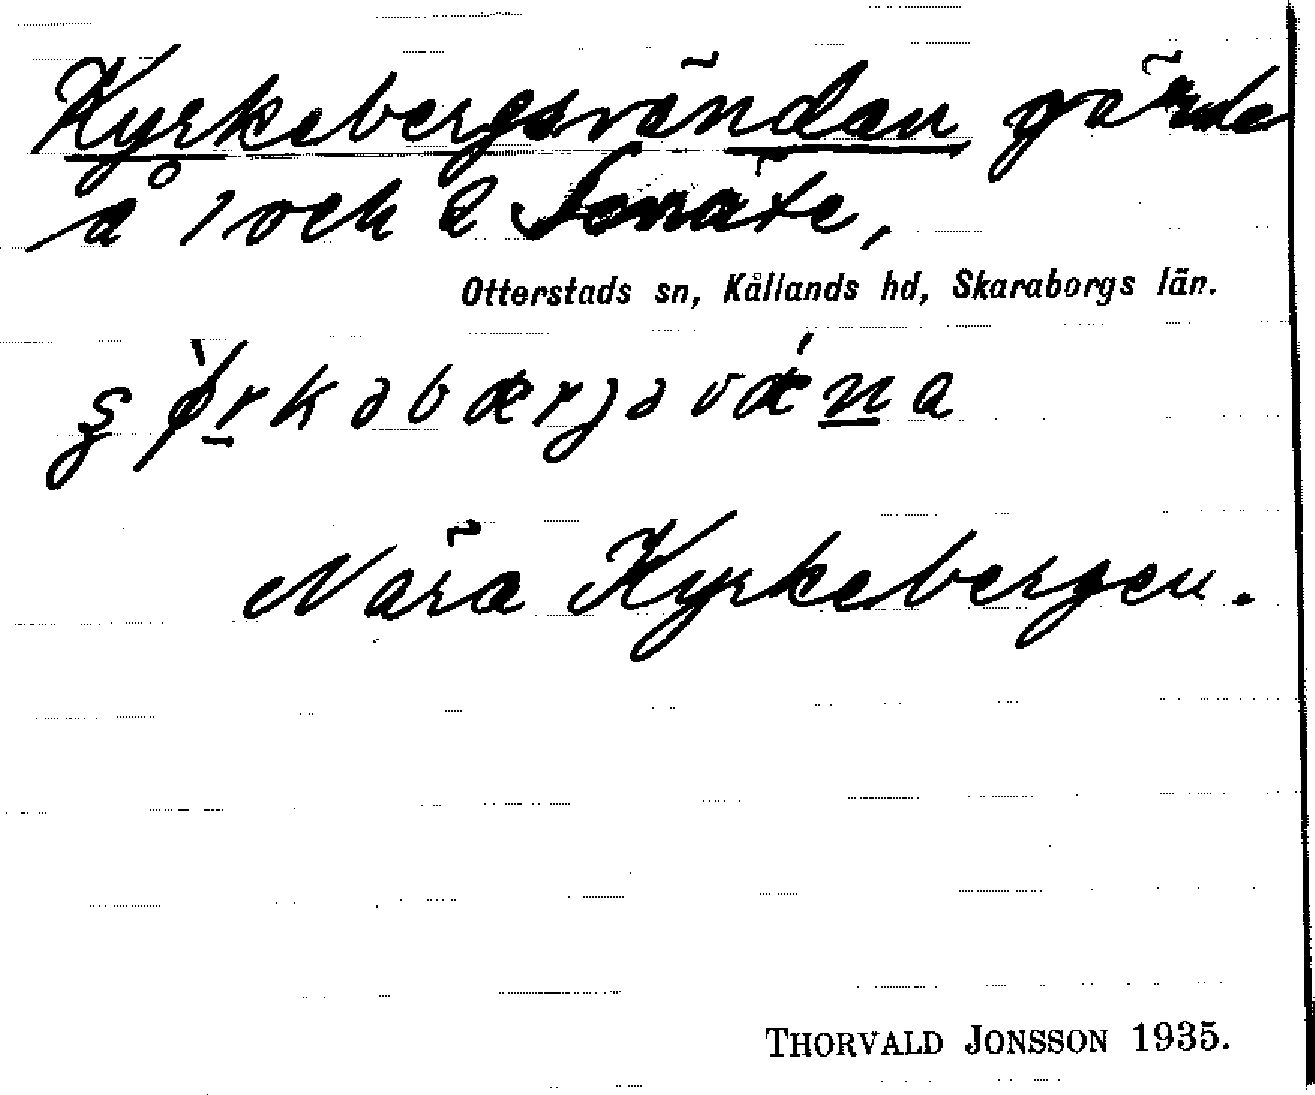 Kyrkebergsvändan gärde
å 1 och 2 Senäte,
Otterstads sn, Kållands hd, Skaraborgs län.
Nära Kyrkebergen.
THORVALD JONSSON 1935.